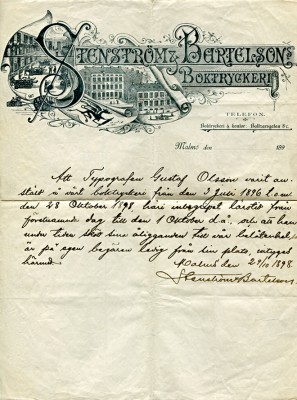 Stenström & Bartelsons
Boktryckeri
TELEFON.
Malmö den 189
Att Typografen Gustaf Olsson varit an-
ställd i vårt boktryckeri från den 3 Juli 1896 t.o.m
den 28 Oktober 1898, häri inbegripet lärotid från
förstnämnda dag till den 1 Oktober d.å., och att han
under tiden skött sina åligganden till vår belåtenhet,
är på egen begäran ledig från sin plats, intygas
härmed.
Malmö den 29/10 1898.
Stenström & Bartelson